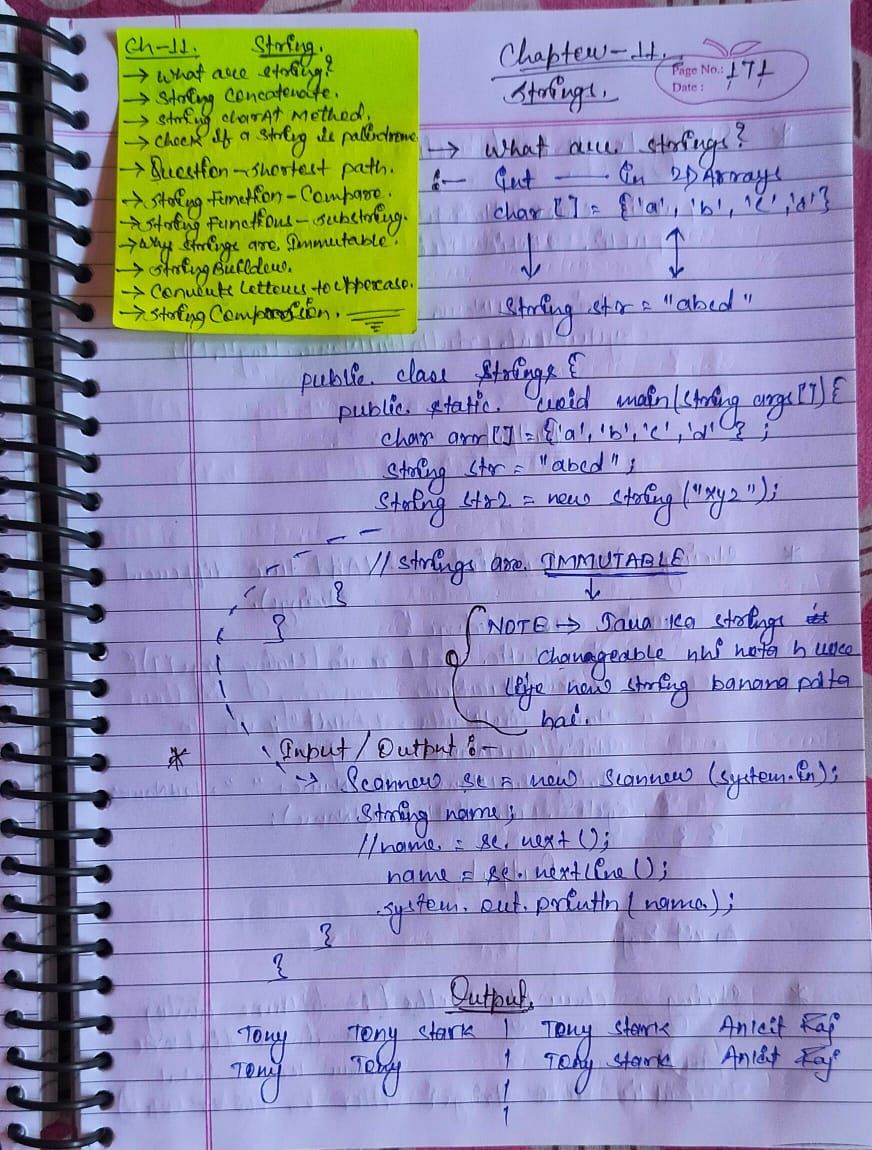 Ch-11. String.
→ What are string?
→ String Concatenate.
→ String charAt Method.
→ Check if a string is pallindrome
→ Question - shortest path.
→ String Function - Compare.
→ String Functions - substring.
→ Why Strings are Immutable.
→ String Builder.
→ Convert Letters to Uppercase.
→ String Compression.
Chapter-11.
Strings.
Page No.: 171
Date :
→ What are strings?
:- Gut —— in 2D Arrays
char [] = {'a', 'b', 'c', 'd'}
String str = "abcd"
public class Strings {
public static void main(String args[]) {
char arr[] = {'a', 'b', 'c', 'd' } ;
String str = "abcd" ;
String str2 = new String ("xyz");
// Strings are IMMUTABLE
}
}
NOTE → Java ka strings
changeable nhi hota h usse
liye new string banana pdta
hai.
* Input / Output :-
→ Scanner sc = new Scanner (System.in);
String name ;
//name = sc. next ();
name = sc. nextline ();
System. out. println ( name );
}
}
Output.
Tony Tony Stark | Tony Stark Ankit Raj
Tony Tony | Tony Stark Ankit Raj